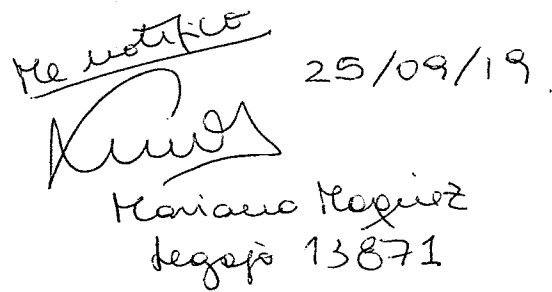 Me notifico
25/09/19.
Mariano
Legajo 13871